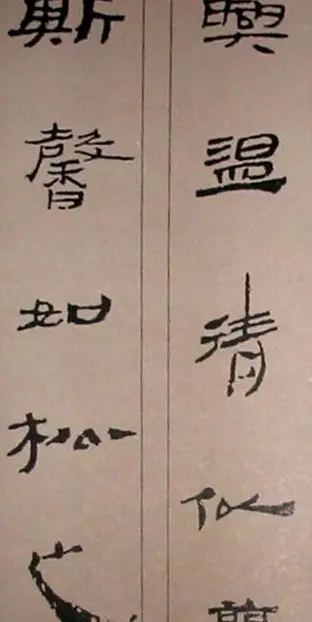 興温凊似
斯馨如松之